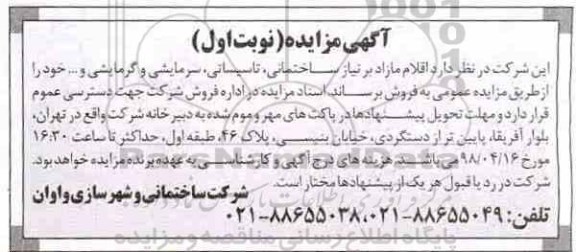 آگهی مزایده (نوبت اول)
این شرکت در نظر دارد اقلام مازاد بر نیاز ساختمانی، تاسیساتی، سرمایشی و گرمایشی و... خود را
از طریق مزایده عمومی به فروش برساند. اسناد مزایده در اداره فروش شرکت جهت دسترسی عموم
قرار دارد و مهلت تحویل پیشنهادها در پاکت های مهر و موم شده به دبیرخانه شرکت واقع در تهران،
بلوار آفریقا، پایین تر از دستگردی، خیابان بنیسی، پلاک ۴۶، طبقه اول، حداکثر تا ساعت ۱۶:۳۰
مورخ ۹۸/۰۴/۱۶ می باشد. هزینه های درج آگهی و کارشناسی به عهده برنده مزایده خواهد بود.
شرکت در رد یا قبول هر یک از پیشنهادها مختار است.
شرکت ساختمانی و شهرسازی واوان
تلفن: ۸۸۶۵۵۰۴۹-۰۲۱،۸۸۶۵۵۰۳۸-۰۲۱
پایگاه اطلاع رسانی مناقصه و مزایده